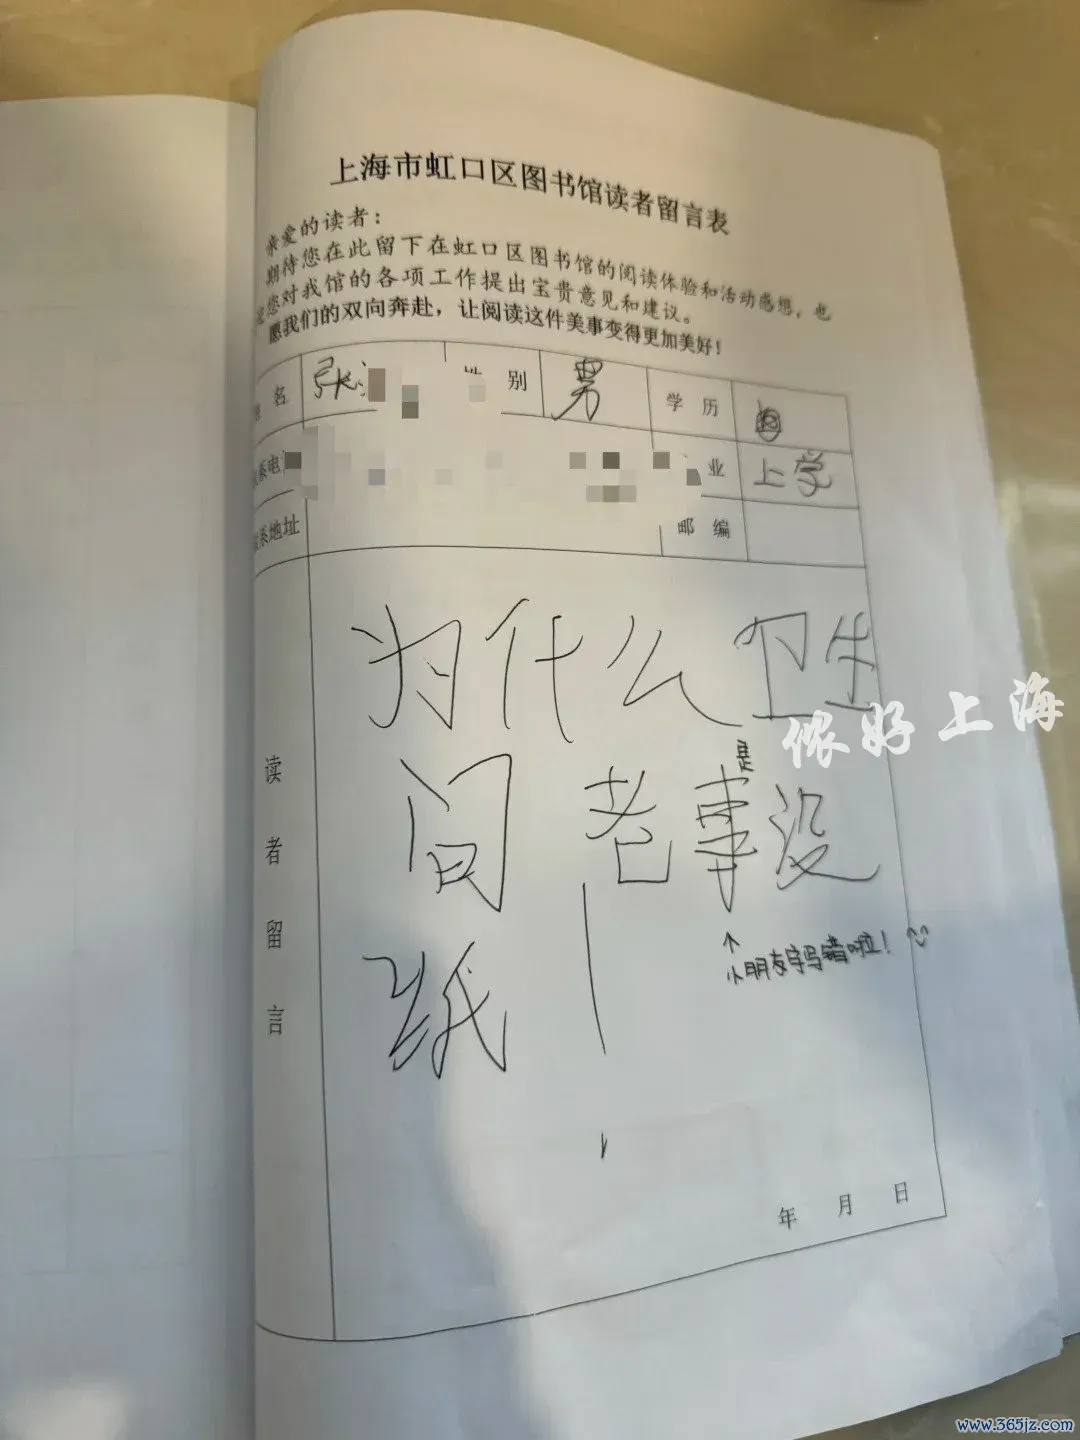 上海市虹口区图书馆读者留言表
亲爱的读者：
期待您在此留下在虹口区图书馆的阅读体验和活动感想，也
您对我馆的各项工作提出宝贵意见和建议。
愿我们的双向奔赴，让阅读这件美事变得更加美好！
名 张 性 别 男 学 历
系电 业 上学
系地址 邮 编
读者留言
为什么卫生
间老事没
是
↑
小朋友字写错啦！
纸！
年 月 日
侬好上海
www.365jz.com